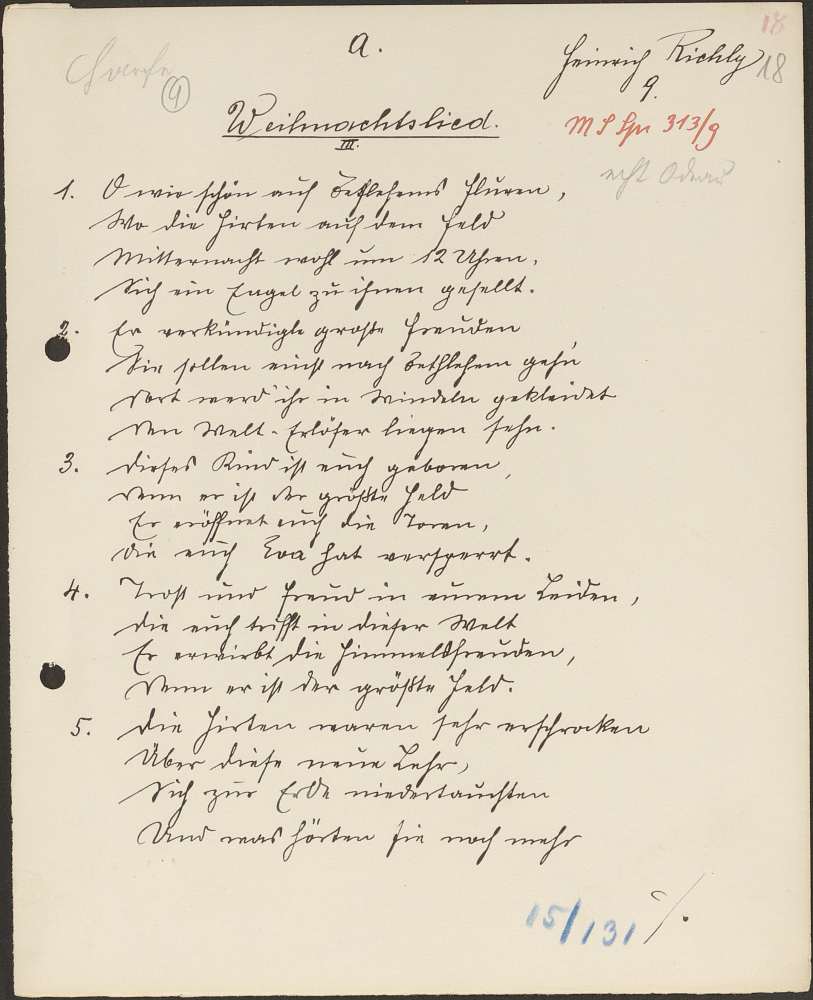 a.
18
Heinrich Richly
18
9.
1
Weihnachtslied.
III.
313/9
echt Odrau
1. O wie schön auf Bethlehems Fluren,
Wo die Hirten auf dem Feld
Mitternacht wohl um 12 Uhren,
Sich ein Engel zu ihnen gesellt.
2. Er verkündigte große Freuden
Sie sollen einst nach Bethlehem gehn
Dort werd ihr in Windeln gekleidet
Den Welt-Erlöser liegen sehn.
3. Dieses Kind ist euch geboren,
Denn er ist der größte Held
Er eröffnet euch die Toren,
Die euch Eva hat versperrt.
4. Trost und Freud in eurem Leiden,
Die euch trifft in dieser Welt
Er erwirbt die Himmelsfreuden,
Denn er ist der größte Held.
5. Die Hirten waren sehr erschrocken
Über diese neue Lehr,
Sich zur Erde niedertauchten
Und was hörten sie noch mehr
15/131